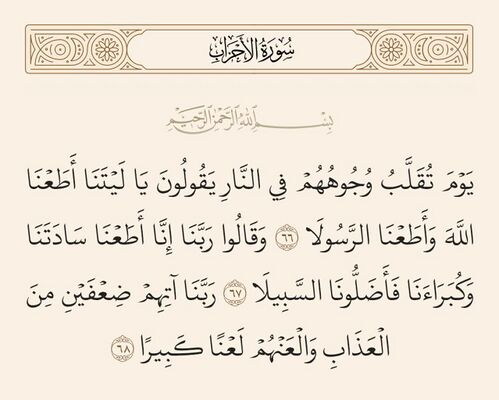 سُورَةُ الأَحْزَابِ
بِسْمِ اللَّهِ الرَّحْمَٰنِ الرَّحِيمِ
يَوْمَ تُقَلَّبُ وُجُوهُهُمْ فِي النَّارِ يَقُولُونَ يَا لَيْتَنَا أَطَعْنَا
اللَّهَ وَأَطَعْنَا الرَّسُولَا ٦٦ وَقَالُوا رَبَّنَا إِنَّا أَطَعْنَا سَادَتَنَا
وَكُبَرَاءَنَا فَأَضَلُّونَا السَّبِيلَا ٦٧ رَبَّنَا آتِهِمْ ضِعْفَيْنِ مِنَ
الْعَذَابِ وَالْعَنْهُمْ لَعْنًا كَبِيرًا ٦٨